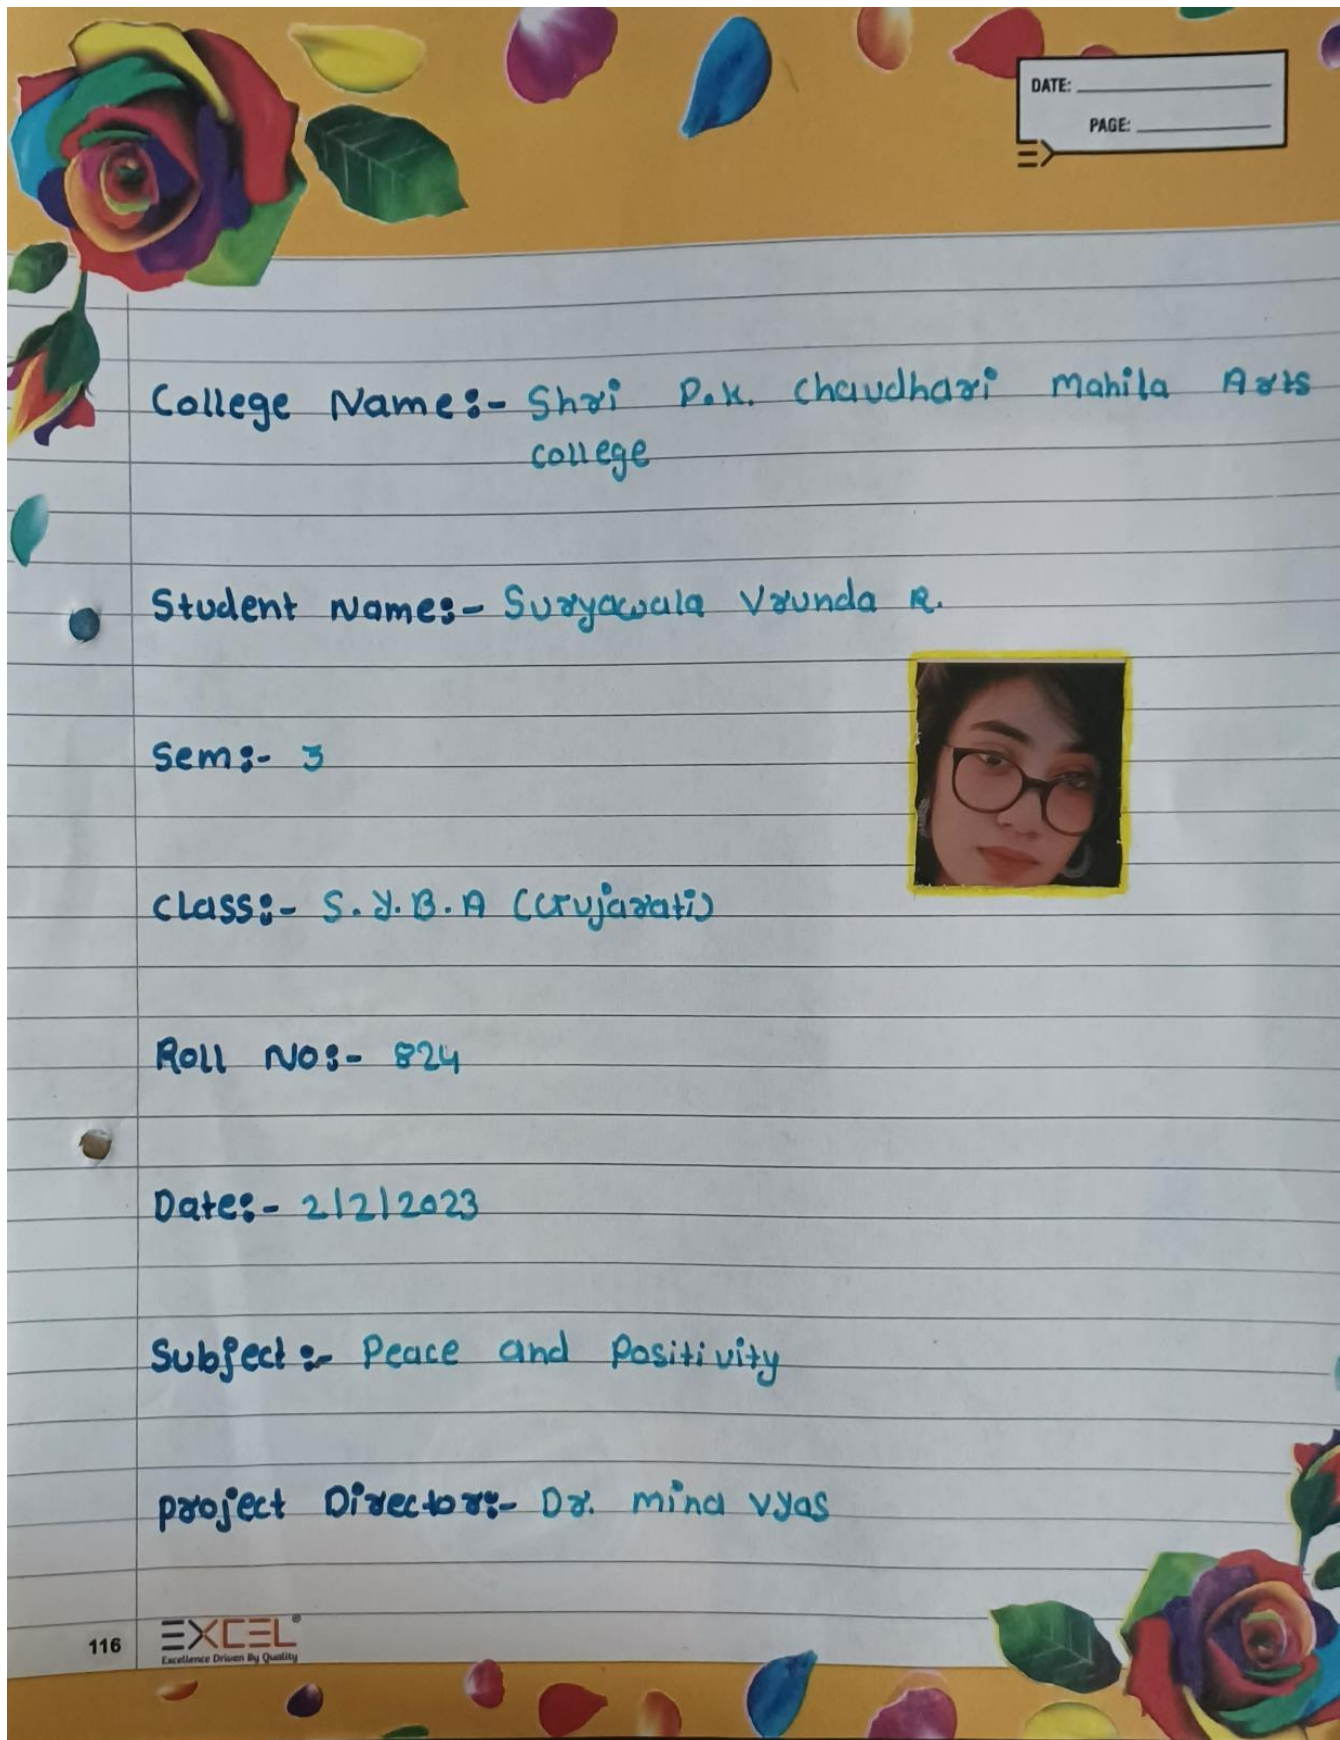 DATE:
PAGE:
College Name:- Shri P.K. Chaudhari Mahila Arts
college
Student Name:- Suryawala Vrunda R.
Sem:- 3
Class:- S.Y.B.A (Gujarati)
Roll No:- 824
Date:- 2/2/2023
Subject:- Peace and Positivity
project Director:- Dr. mina vyas
116
EXCEL®
Excellence Driven By Quality